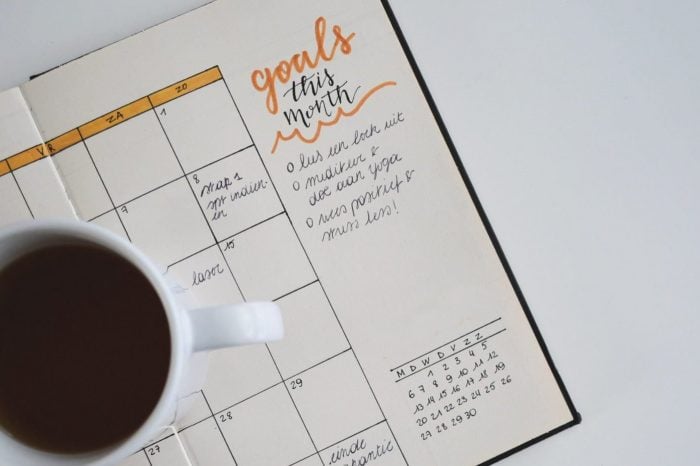 VR ZA ZO
1
7
8
stap 1
spt indien-
en
15
laser
27
28
29
einde
goals
this
month
O lees een boek uit
O mediteer &
doe aan yoga
O wees positief &
stress less!
M D W D V Z Z
1 2 3 4 5
6 7 8 9 10 11 12
13 14 15 16 17 18 19
20 21 22 23 24 25 26
27 28 29 30